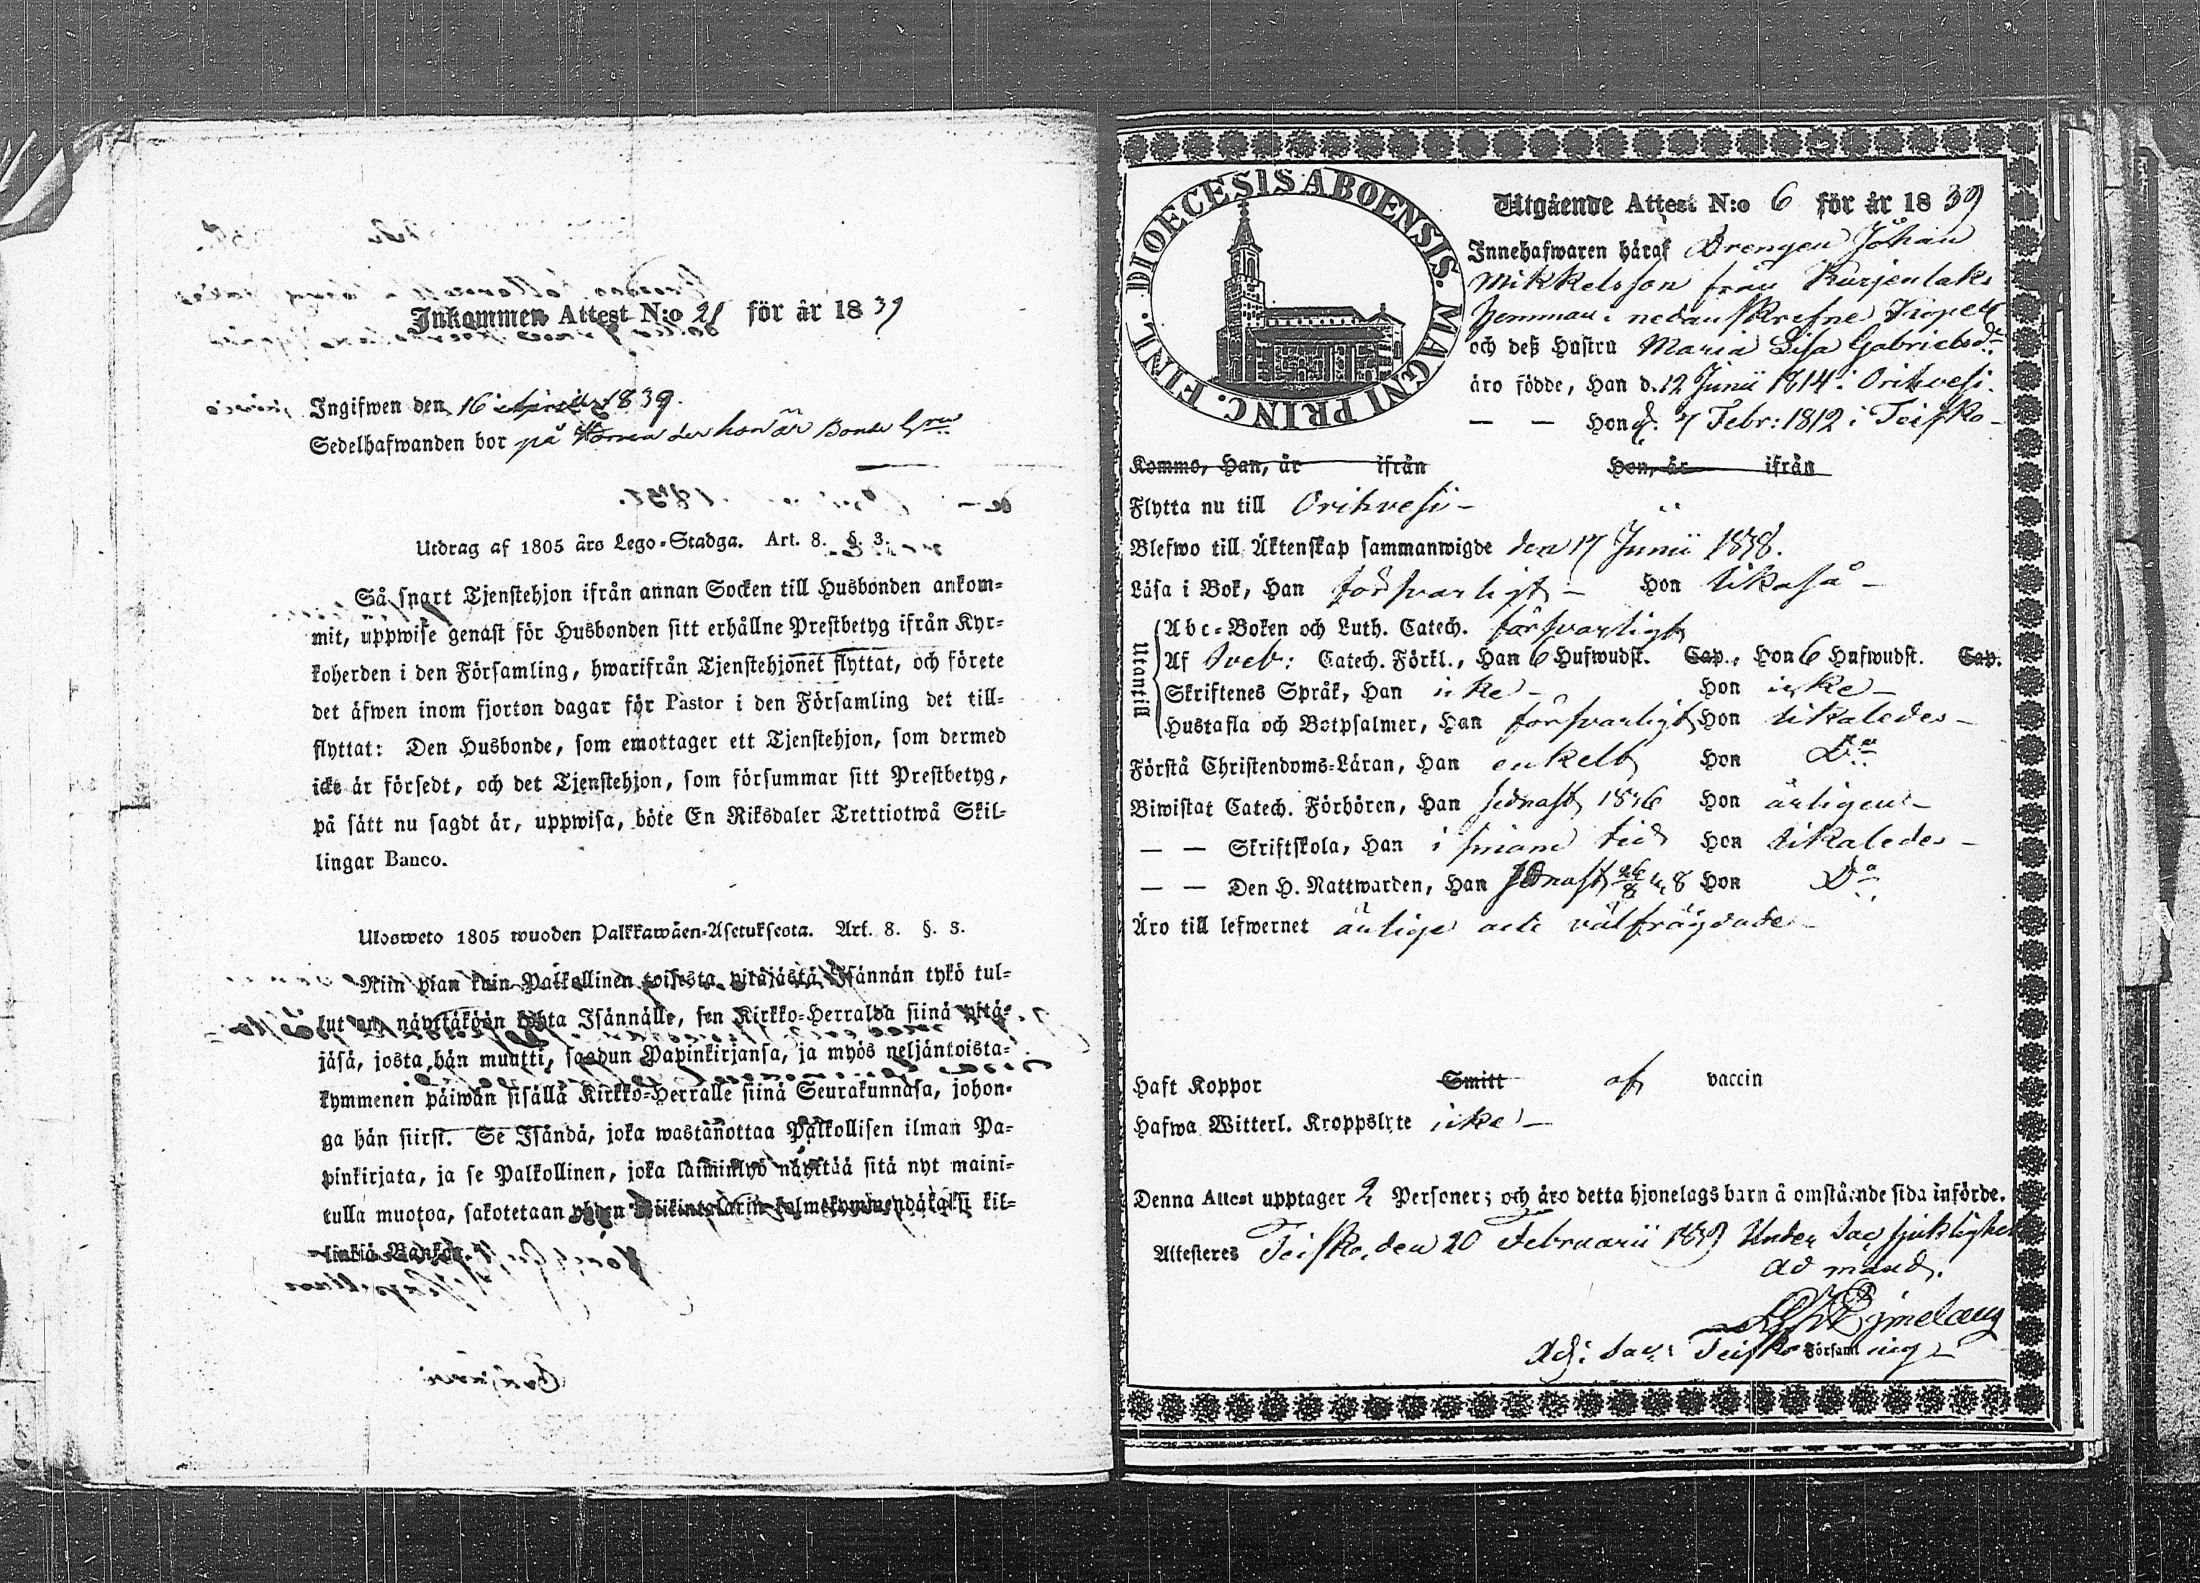 Inkommen Attest N:o 21 för år 1839
Ingifwen den 16 Aprill 1839.
Sedelhafwanden bor på der hon är Bonde
Utdrag af 1805 års Lego-Stadga. Art. 8. §. 3.
Så snart Tjenstehjon ifrån annan Socken till Husbonden ankom-
mit, uppwise genast för Husbonden sitt erhållne Prestbetyg ifrån Kyr-
koherden i den Församling, hwarifrån Tjenstehjonet flyttat, och förete
det äfwen inom fjorton dagar för Pastor i den Församling det till-
flyttat: Den Husbonde, som emottager ett Tjenstehjon, som dermed
icke är försedt, och det Tjenstehjon, som försummar sitt Prestbetyg,
på sätt nu sagdt är, uppwisa, böte En Riksdaler Trettiotwå Skil-
lingar Banco.
Ulosweto 1805 wuoden Palkkawäen-Asetuksesta. Art. 8. §. 3.
Niin pian kuin Palkollinen toisesta pitäjästä Isännän tykö tul-
lut on, näyttäköön kohta Isännälle, sen Kirkko-Herralda siinä pitä-
jäsä, josta hän muutti, saadun Papinkirjansa, ja myös neljäntoista-
kymmenen päiwän sisällä Kirkko-Herralle siinä Seurakunnasa, johon-
ga hän siirst. Se Isändä, joka wastanottaa Palkollisen ilman Pa-
pinkirjata, ja se Palkollinen, joka laiminlyö näyttää sitä nyt maini-
tulla muotoa, sakotetaan yhden Riikintalarin kolmekymmendäkaksi kil-
linkiä Bankos.
DIOECESIS ABOENSIS. MAGNI PRINC. FINL.
Utgående Attest N:o 6 för år 1839
Innehafwaren häraf Drengen Johan
Mikkelsson från Kurjenlaks
hemman i nedanskrefne
och deß Hustru Maria Lisa Gabrielsdr
äro födde, Han d. 12 Junii 1814 i Orihvesi.
— — Hon d. 7 Febr: 1812 i Teisko -
Komme, Han, år ifrån Hon, år ifrån
Flytta nu till Orihvesi -
Blefwo till Äktenskap sammanwigde den 17 Junii 1838.
Läsa i Bok, Han försvarligt - Hon likaså -
Utantill
Abc-Boken och Luth. Catech. försvarligt
Af Sveb: Catech. Förkl., Han 6 Hufwudst. Cap., Hon 6 Hufwudst. Cap.
Skriftenes Språk, Han icke - Hon icke -
Hustafla och Botpsalmer, Han försvarligt Hon likaledes -
Förstå Christendoms-Läran, Han enkelt Hon Do
Biwistat Catech. Förhören, Han sednast 1836 Hon årligen -
— — Skriftskola, Han i sinom tid Hon likaledes -
— — Den H. Nattwarden, Han sednast 26/8 38 Hon Do
Äro till lefwernet ärlige och välfrägdade -
Haft Koppor Smitt af vaccin
Hafwa Witterl. Kroppslyte icke -
Denna Attest upptager 2 Personer; och äro detta hjonelags barn å omstående sida införde.
Attesteres Teisko, den 20 Februarii 1839 Under Sac. sjuklighet
ad mand.
Adj: Sac: Teisko Församling